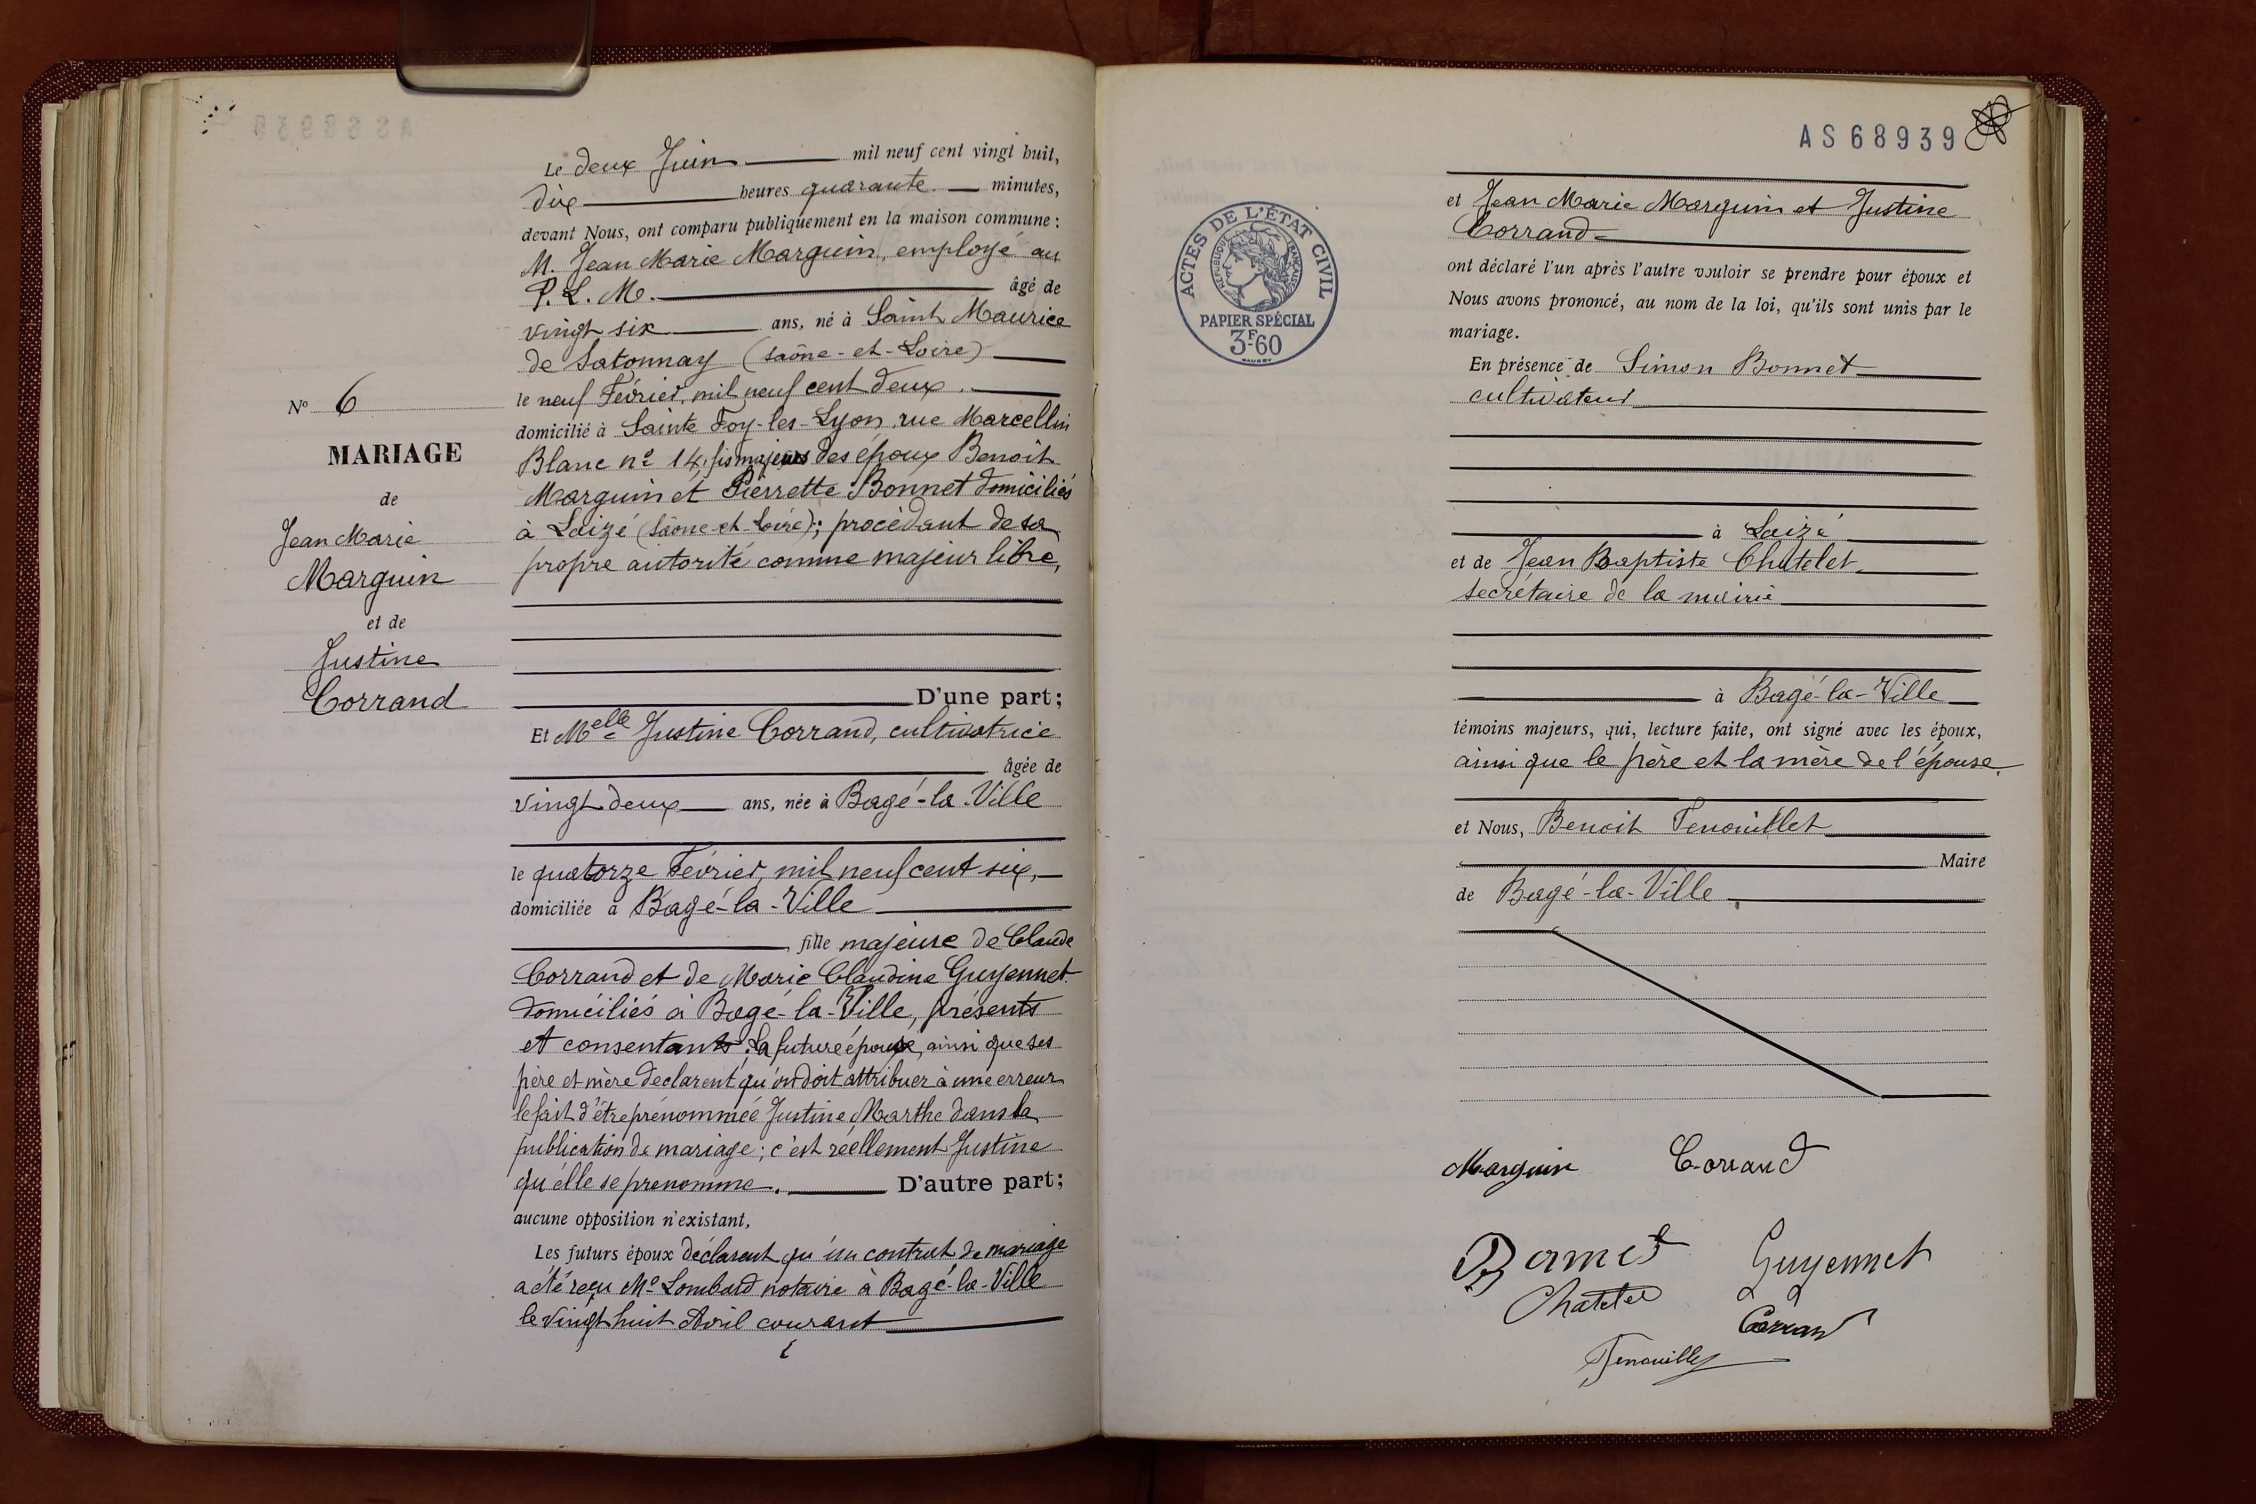 Le deux Juin mil neuf cent vingt huit,
dix heures quarante minutes,
devant Nous, ont comparu publiquement en la maison commune :
M. Jean Marie Marguin, employé au
P. L. M. âgé de
vingt six ans, né à Saint Maurice
de Satonnay (Saône-et-Loire)
le neuf Février, mil neuf cent deux.
domicilié à Sainte Foy-les-Lyon, rue Marcellin
Blanc nº 14, fils majeur des époux Benoit
Marguin et Pierrette Bonnet domiciliés
à Laizé (Saône-et-Loire); procédant de sa
propre autorité comme majeur libre,
Nº 6
MARIAGE
de
Jean Marie
Marguin
et de
Justine
Corrand
D'une part ;
Et Melle Justine Corrand, cultivatrice
âgée de
vingt deux ans, née à Bagé-la-Ville
le quatorze Février, mil neuf cent six,
domiciliée à Bagé-la-Ville
fille majeure de Claude
Corrand et de Marie Claudine Guyennet
domiciliés à Bagé-la-Ville, présents
et consentants; La future épouse, ainsi que ses
père et mère déclarent qu'on doit attribuer à une erreur
le fait d'être prénommée Justine Marthe dans la
publication de mariage ; c'est réellement Justine
qu'elle se prenomme. D'autre part ;
aucune opposition n'existant,
Les futurs époux déclarent qu'un contrat de mariage
a été reçu Me Lombard notaire à Bagé-la-Ville
le vingt huit Avril courant
AS68939
ACTES DE L'ÉTAT CIVIL
RÉPUBLIQUE FRANÇAISE
PAPIER SPÉCIAL
3F60
et Jean Marie Marguin et Justine
Corrand
ont déclaré l'un après l'autre vouloir se prendre pour époux et
Nous avons prononcé, au nom de la loi, qu'ils sont unis par le
mariage.
En présence de Simon Bonnet
cultivateur
à Laizé
et de Jean Baptiste Chatelet
secrétaire de la mairie
à Bagé-la-Ville
témoins majeurs, qui, lecture faite, ont signé avec les époux,
ainsi que le père et la mère de l'épouse.
et Nous, Benoit Fenouillet
Maire
de Bagé-la-Ville
Marguin Corrand
Bonnet Guyennet
Chatelet
Corrand
Fenouillet